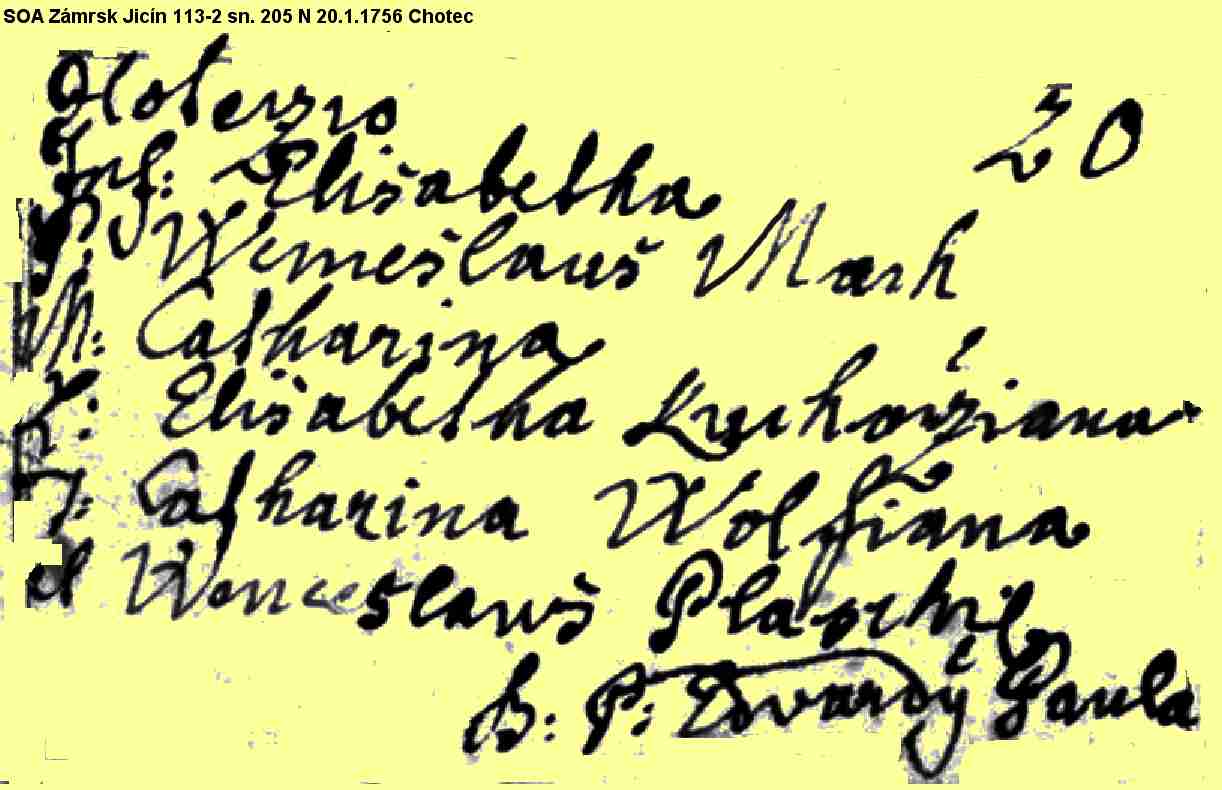 SOA Zámrsk Jicín 113-2 sn. 205 N 20.1.1756 Chotec
20
Inf: Elisabetha
Wenceslaus Mach
M: Catharina
L: Elisabetha
T: Catharina Wolfiana
et Wenceslaus
B: P: Edvardy Paula